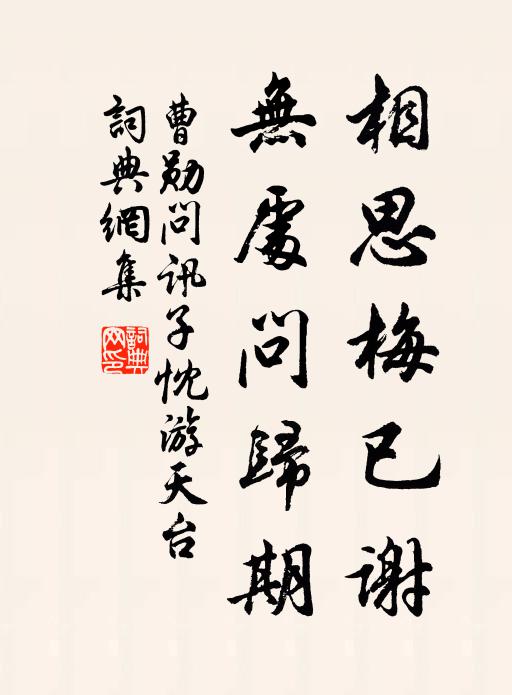 相思梅已謝
無處問歸期
曹勛問訊子忱游天台
詞典網集
詞典網印